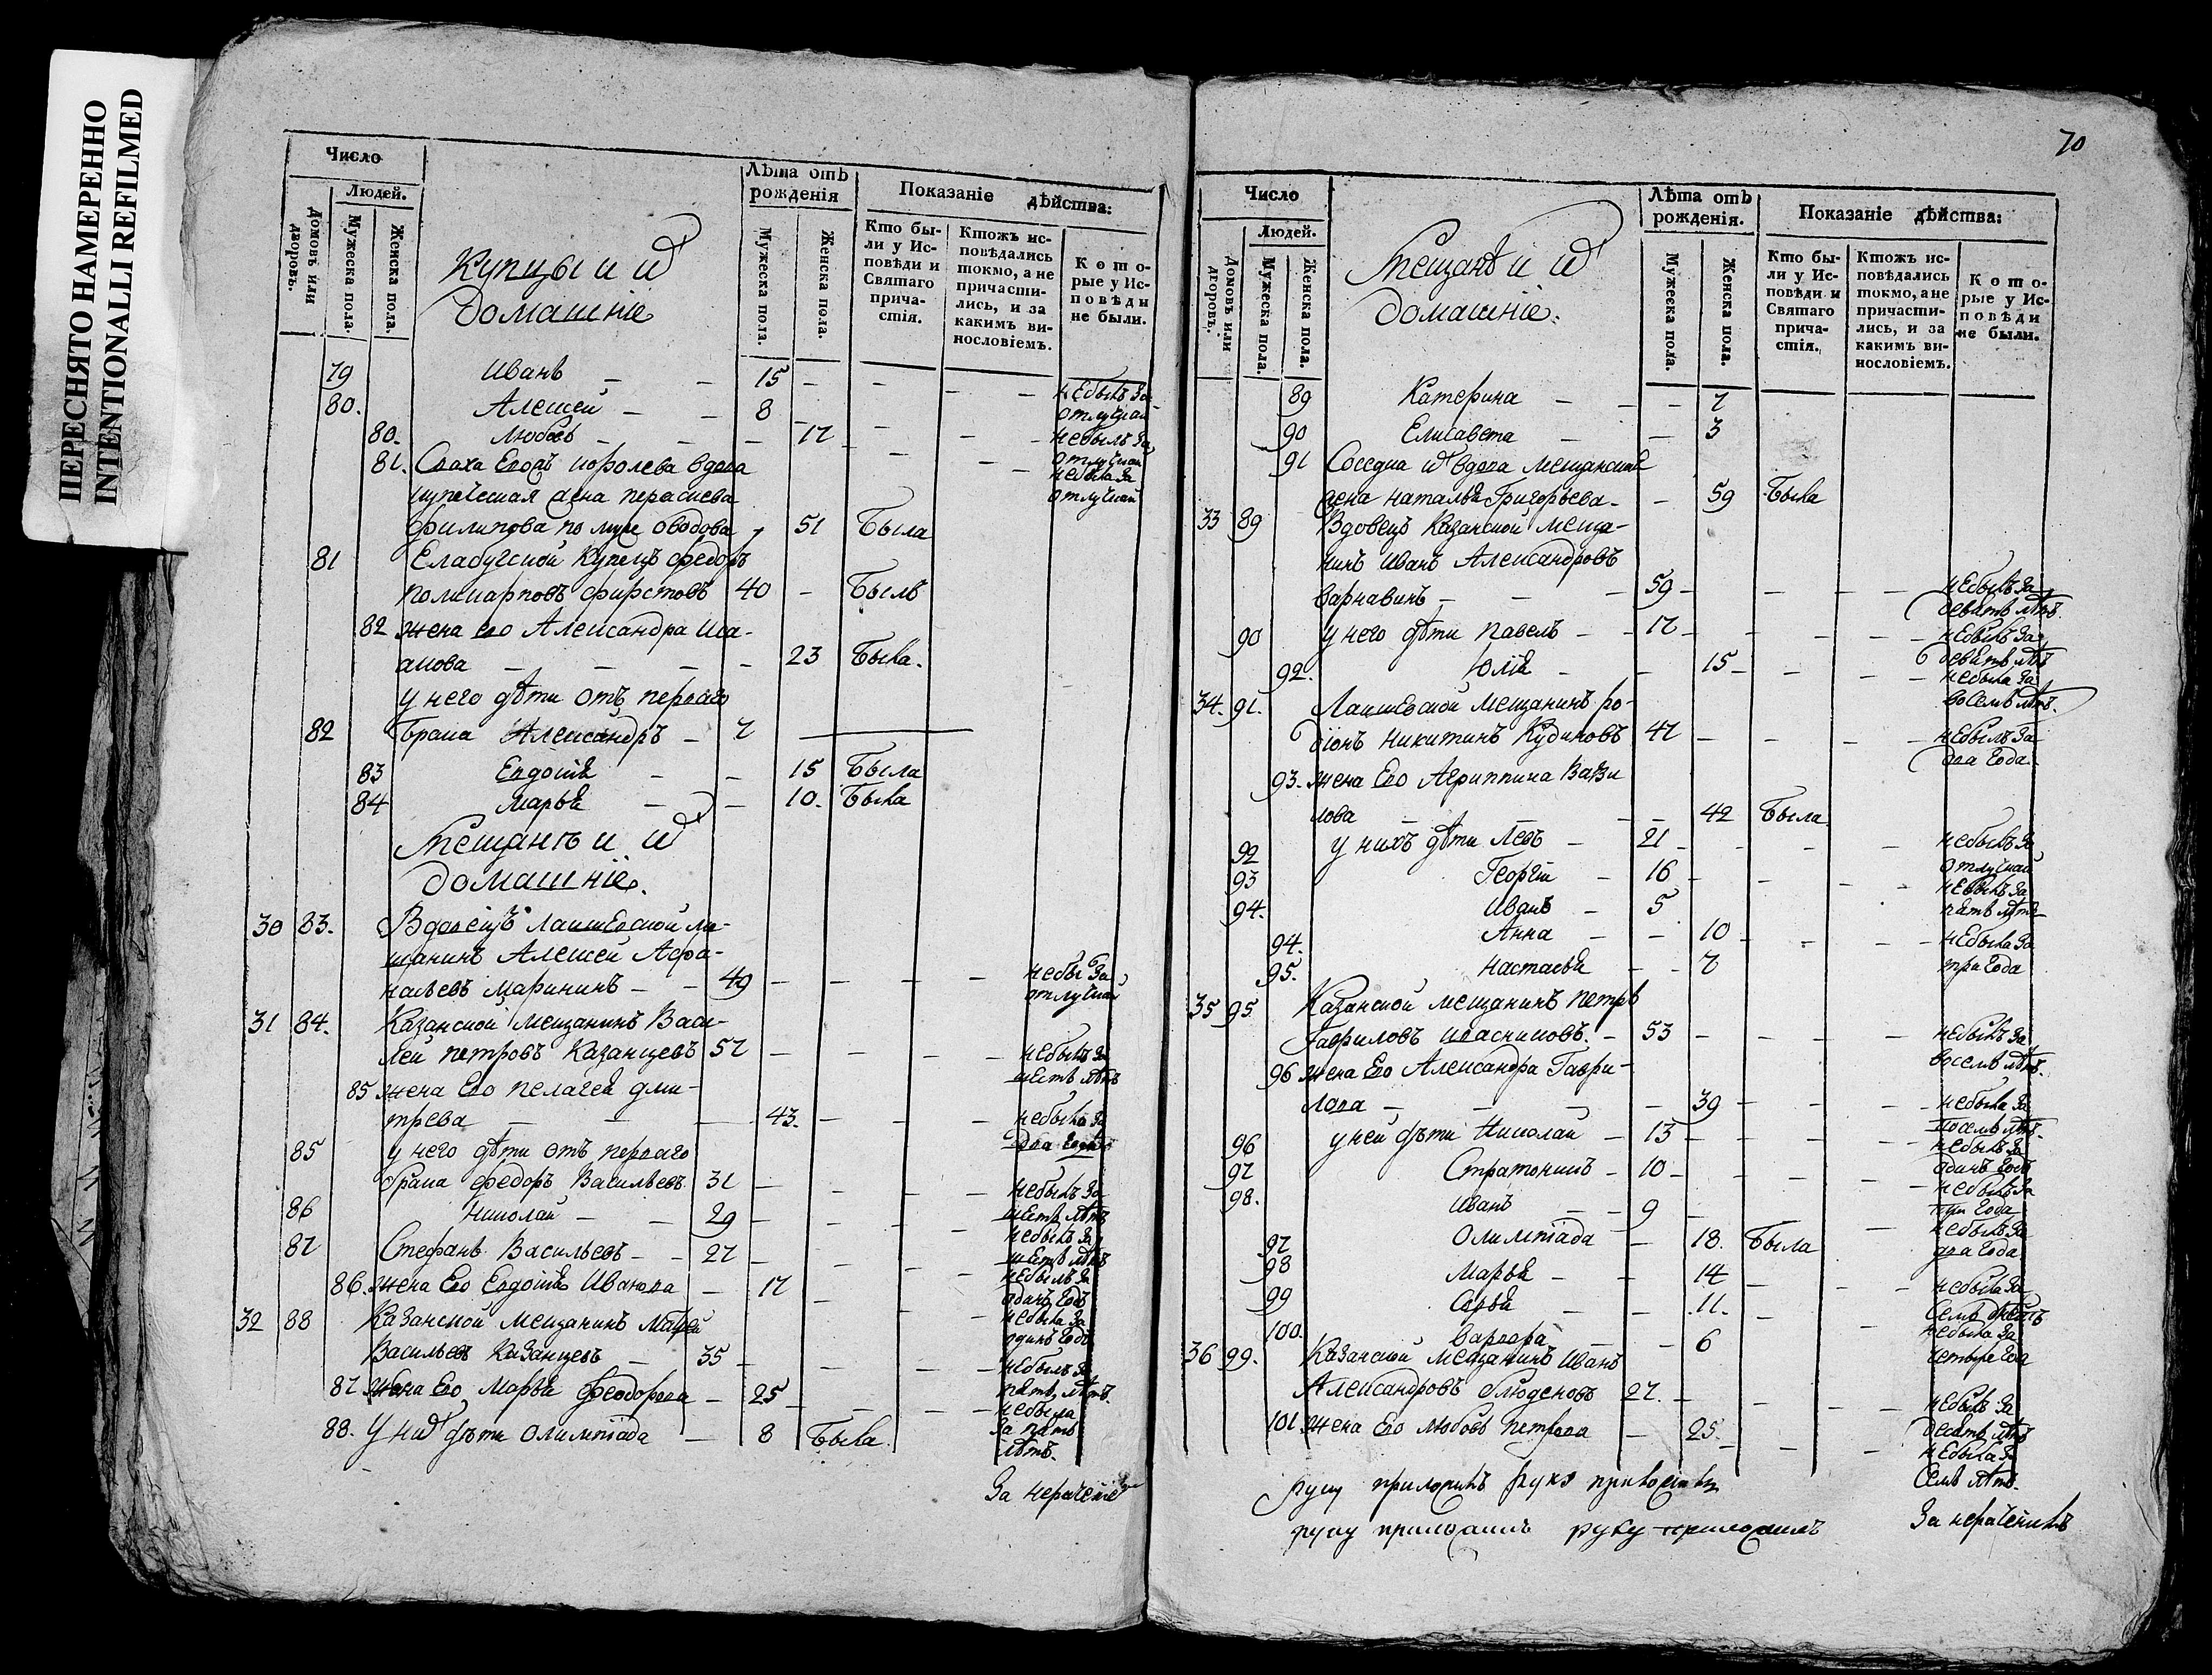 ПЕРЕСНЯТО НАМЕРЕННО
INTENTIONALLI REFILMED
Число
Людей.
Домовъ или дворовъ.
Мужеска пола.
Женска пола.
Купцы и их
домашнiе
Лѣта отъ рожденiя
Мужеска пола.
Женска пола.
Показанiе дѣйства:
Кто были у Исповѣди и Святаго причастiя.
Ктожъ исповѣдались токмо, а не причастились, и за какимъ винословiемъ.
Которые у Исповѣди не были.
79 Иванъ 15 небылъ За
80. Алексей 8 отлучкой
80. Любовь 17 небылъ За
81. Сваха вдова отлучкой
купеческая жена небыла За
отлучкой
Филипова по муже 51 Была
81 Елабугской Купецъ Федоръ
Поликарповъ Фирстовъ 40 Былъ
82 жена его Александра Иса-
акова 23 Была.
у него дѣти отъ перваго
82 брака Александръ 7
83 Евдокiя 15 Была
84 Марья 10. Была
Мещанъ и их
домашнiе.
30 83. Вдовецъ Лаишевской ме-
щанинъ Алексей Афа-
насьевъ Маринин 49 небы За
отлучкой
31 84. Казанской Мещанинъ Васи-
лей Петровъ Казанцевъ 57 небылъ За
шесть лѣтъ
85 жена Его Пелагея Дми-
трева 43. небыла За
два года
85 у него дѣти отъ перваго
брака Федоръ Васильевъ 31 небылъ За
шесть лѣтъ
86 Николай 29 небылъ За
шесть лѣтъ
87 Стефанъ Васильевъ 27 небылъ За
одинъ Годъ
86. жена Его Евдокiя Иванова 17 небыла За
одинъ Годъ
32 88 Казанской Мещанинъ Матфей
Васильевъ Казанцевъ 35 небылъ За
пять лѣтъ.
87 жена Его Марья Феодорова 25 небыла
За пять
лѣтъ.
88. У них дѣти Олимпiада 8 Была
За нераченiе
70
Число
Людей.
Домовъ или дворовъ.
Мужеска пола.
Женска пола.
Мещанъ и их
домашнiе.
Лѣта отъ рожденiя.
Мужеска пола.
Женска пола.
Показанiе дѣйства:
Кто были у Исповѣди и Святаго причастiя.
Ктожъ исповѣдались токмо, а не причастились, и за какимъ винословiемъ.
Которые у Исповѣди не были.
89 Катерина 7
90 Елисавета 3
91 Соседка их вдова мещанская
жена Наталья Григорьева 59 Была
33 89 Вдовецъ Казанской Меща-
нинъ Иванъ Александровъ
Варнавинъ 59 небылъ За
девять лѣтъ.
90 у него дѣти Павелъ 17 небылъ За
девять лѣтъ
92. Юлiя 15 небыла За
восемь лѣтъ.
34. 91. Лаишевской Мещанинъ Ро-
дiонъ Никитинъ Кудиковъ 47 небылъ За
два Года
93. жена Его Агриппина Вави
лова 42 Была.
92 у нихъ дѣти Левъ 21 небылъ За
отлучкой
93 Георгiй 16 небылъ За
94. Иванъ 5 пять лѣтъ
94. Анна 10 небыла За
95. Настасья 7 три Года
35 95 Казанской Мещанинъ Петръ
Гавриловъ 53 небылъ За
восемь лѣтъ.
96 жена Его Александра Гаври-
лова 39 небыла За
восемь лѣтъ.
96 у ней дѣти Николай 13 небылъ За
одинъ Годъ
97 Стратоникъ 10 небылъ За
три Года
98. Иванъ 9 небылъ За
два Года
97 Олимпiада 18. Была
98 Марья 14 небыла За
семь лѣтъ
99 Софья 11. небыла За
четыре Года
100. Варвара 6
36 99. Казанской Мещанинъ Иванъ
Александровъ Блюденовъ 27. небылъ За
десять лѣтъ
101. жена Его Любовь Петрова 25. небыла За
семь лѣтъ.
За нераченiемъ
руку приложилъ руку
руку приложилъ руку приложилъ